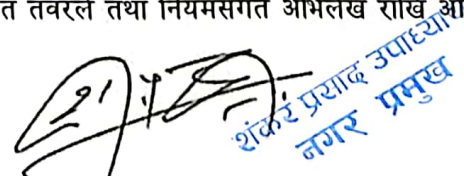 त तवरले तथा नियमसंगत अभिलेख राखि
शंकर प्रसाद उपाध्याय
नगर प्रमुख